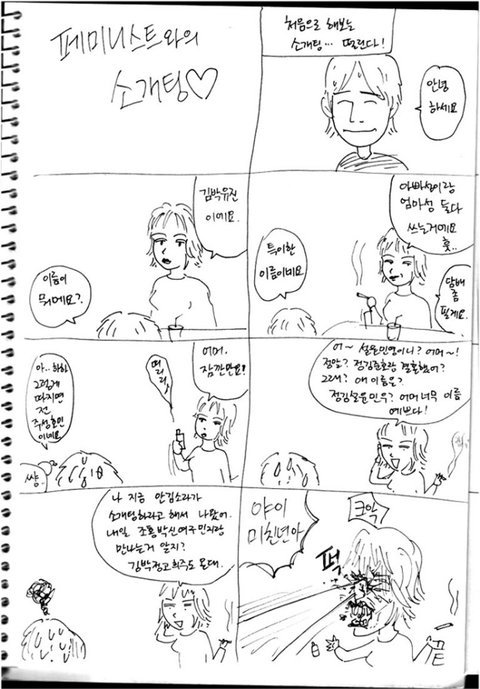 페미니스트와의
소개팅♡
처음으로 해보는
소개팅… 떨린다!
안녕
하세요
이름이
뭐예요?
김박유진
이예요.
아빠성이랑
엄마성 둘다
쓰는거예요
훗..
특이한
이름이네요
담배
좀
필게요.
아.. 하하
그렇게
따지면
전
주성호인
이네요
쌍
띠리리
어머.
잠깐만요!
어~ 설윤민영이니? 어머~!
정말? 정김준호랑 결혼했어?
그래? 애 이름은?
정김설윤민우? 어머 너무 이름
예쁘다!
나 지금 안김소라가
소개팅하라고 해서 나왔어.
내일 조홍박신여구민지랑
만나는거 알지?
김박정고희주도 온대.
야이
미친년아
퍽
크악